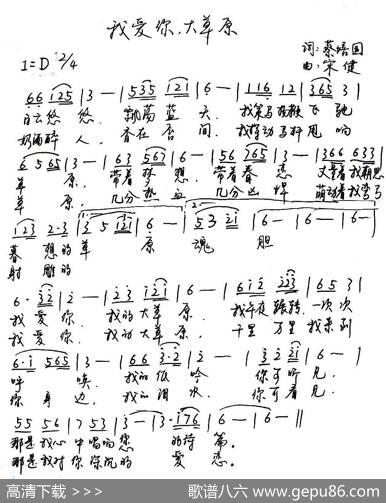 我爱你,大草原
词:蔡培国
1=D 2/4
曲:宋健
66 125 | 3 — | 535 121 | 6 — | 116 12 | 365 3 |
白云悠悠, 飘荡蓝天, 我策马扬鞭飞驰
奶酒醉人, 香在唇间, 我挥动马杆甩响
6 565 | 3 — | 63 567 | 6 — | 56 765 | 3 — | 366 633 |
草原, 带着梦想, 带着眷恋
草原, 几分热血, 几分
123 2·3 | 3 5 121 | 6 — | 53 21 | 6 — | 6 — | 6 — |
暮想的草原 魂胆
射雕的
6· 32 | 2 — | 23 121 | 6 — | 612 223 | 165 3 |
我爱你, 我的大草原, 一次次
我爱你, 我的大草原, 千里万里我来到
6·1 565 | 3 — | 66 3·2 | 2 — | 32 21 | 6 — |
呼唤, 我的低吟, 你可听见,
你身边, 我的泪水, 你可看见,
55 56 | 7 53 | 3 — | 3· 176 | 6 — | 6 — ‖
那是我心中唱响您的诗篇。
那是我对你深沉的爱恋。
高清下载 >>>
歌谱八六 www.gepu86.com